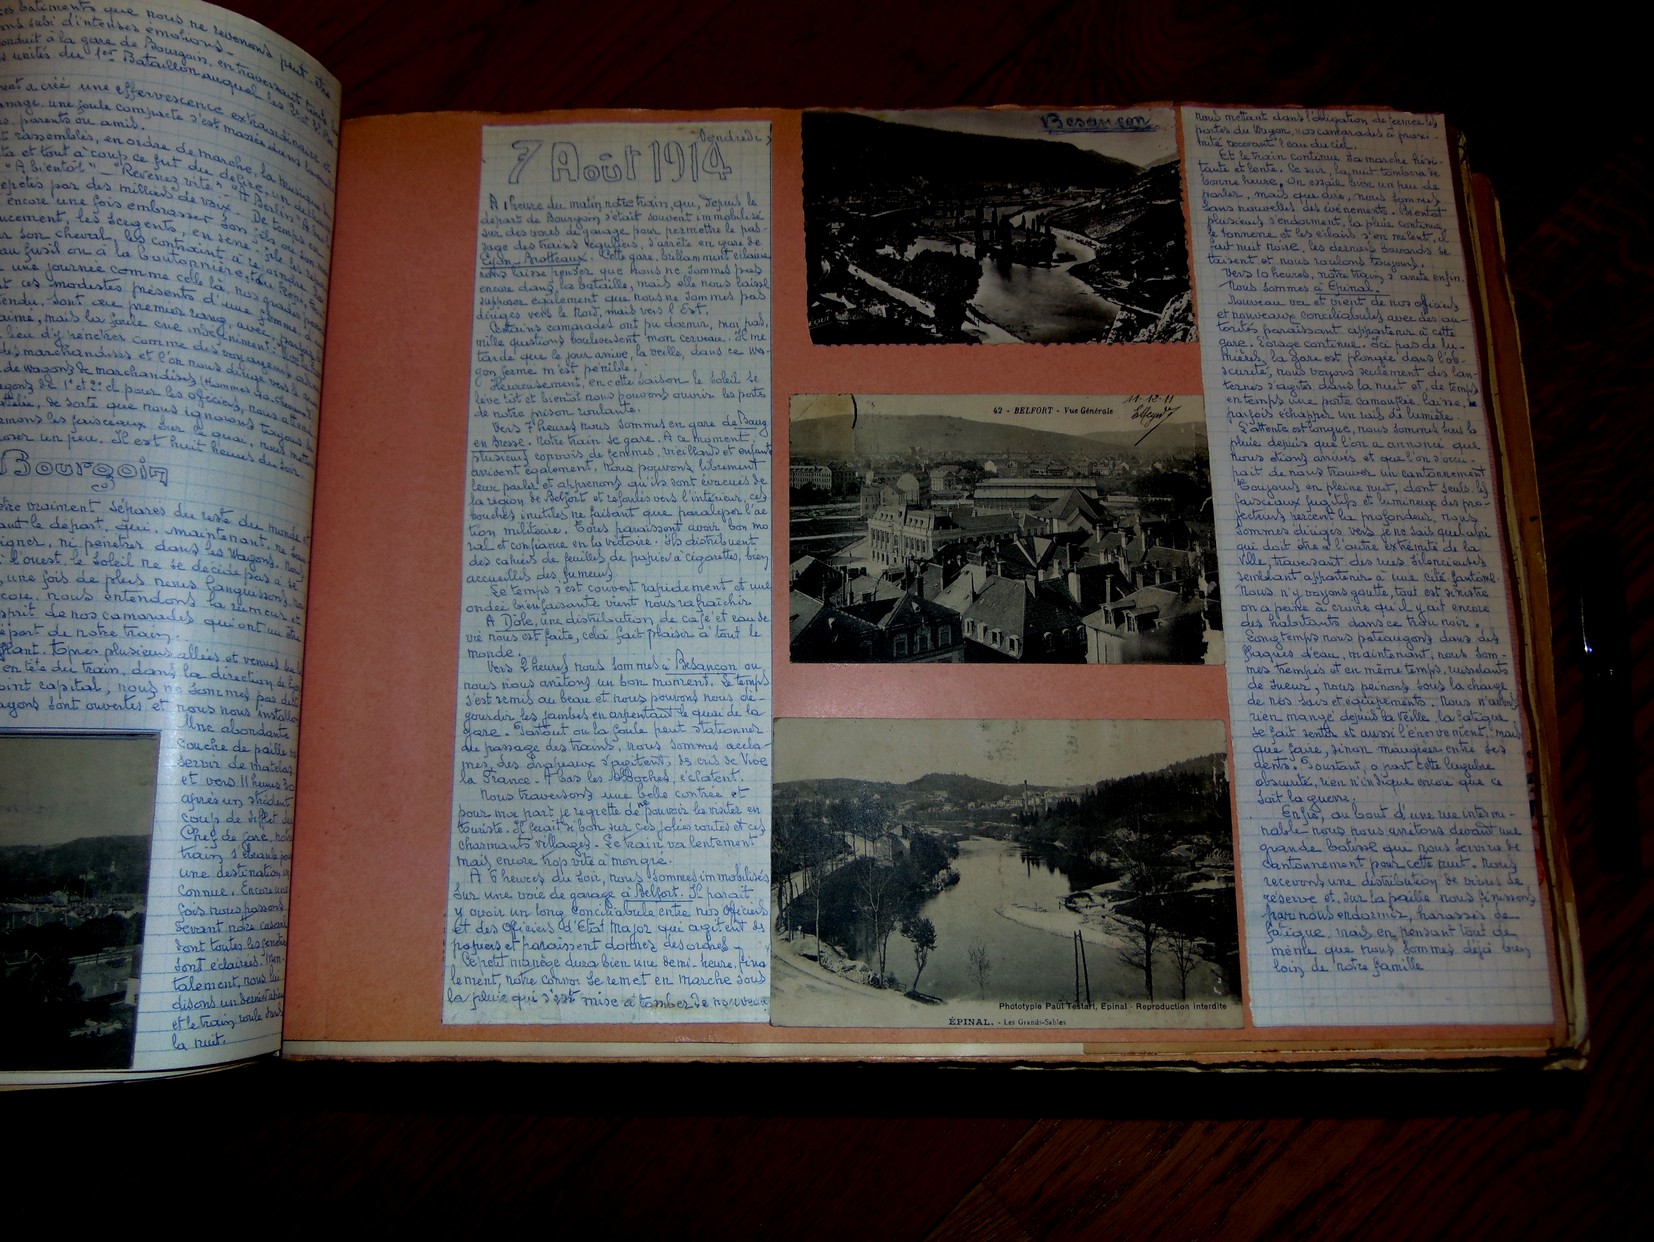 ces bâtiments que nous ne reverrons peut-être
subi d'intenses émotions.
conduit à la gare de Bourgoin, en traversant toute
unités du 1er Bataillon auquel les
a créé une effervescence extraordinaire
une foule compacte s'est massée dans
parents ou amis.
rassemblés, en ordre de marche, la musique
et tout à coup ce fut du délire, un
"A bientôt" - "Revenez vite" "A Berlin"
répétés par des milliers de voix. De temps en
encore une fois embrasser son fils ou son
les sergents, en serre-file
son cheval, les contraint à rejoindre
au fusil ou à la boutonnière
une journée comme celle là, nos grades
ces modestes présents d'une femme
sont au premier rang, avec
mais la foule crie
lieu d'y pénétrer comme des voyageurs
des marchandises et l'on nous dirige vers
de wagons de marchandises (Hommes 40
wagons de 1e et 2e cl pour les officiers, nous
de sorte que nous ignorons toujours
les faisceaux sur le quai, nous
un peu. Il est huit heures du soir
Bourgoin
vraiment séparés du reste du monde
le départ. Qui, maintenant, ne
ni pénétrer dans les wagons.
l'ouest, le soleil ne se décide pas à
une fois de plus nous languissons
nous entendons la rumeur
esprit de nos camarades qui ont
départ de notre train.
Après plusieurs allées et venues
en tête du train, dans la direction de
point capital, nous ne sommes pas
wagons sont ouvertes et nous nous installons
Une abondante
couche de paille
servir de matelas
et vers 11 heures 30
après un strident
coup de sifflet du
Chef de Gare, notre
train s'ébranle pour
une destination in
connue. Encore une
fois nous passons
devant notre caserne
dont toutes les fenêtres
sont éclairées. Men-
talement, nous lui
disons un dernier adieu
et le train roule dans
la nuit.
Vendredi
7 Août 1914
A 1 heure du matin notre train, qui, depuis le
départ de Bourgoin s'était souvent immobilisé
sur des voies de garage pour permettre le pas-
sage des trains réguliers, s'arrête en gare de
Lyon-Brotteaux. Cette gare, brillamment éclairée
nous laisse penser que nous ne sommes pas
encore dans la bataille, mais elle nous laisse
supposer également que nous ne sommes pas
dirigés vers le Nord, mais vers l'Est.
Certains camarades ont pu dormir, moi pas,
mille questions bouleversent mon cerveau. Il me
tarde que le jour arrive, la veille, dans ce wa-
gon fermé m'est pénible.
Heureusement, en cette saison le soleil se
lève tôt et bientôt nous pouvons ouvrir les portes
de notre prison roulante.
Vers 7 heures nous sommes en gare de Bourg
en Bresse. Notre train se gare. A ce moment
plusieurs convois de femmes, vieillards et enfants
arrivent également. Nous pouvons librement
leur parler et apprenons qu'ils sont évacués de
la région de Belfort et refoulés vers l'intérieur, ces
bouches inutiles ne faisant que paralyser l'ac
tion militaire. Tous paraissent avoir bon mo
ral et confiance en la victoire. Ils distribuent
des cahiers de feuilles de papier à cigarettes, bien
accueillis des fumeurs.
Le temps s'est couvert rapidement et une
ondée bienfaisante vint nous rafraîchir
A Dôle, une distribution de café et eau de
vie nous est faite, cela fait plaisir à tout le
monde.
Vers 2 heures nous sommes à Besançon ou
nous nous arrêtons un bon moment. Le temps
s'est remis au beau et nous pouvons nous dé-
gourdir les jambes en arpentant le quai de la
gare. Partout ou la foule peut stationner
au passage des trains, nous sommes accla-
més, des drapeaux s'agitent, des cris de Vive
la France - A bas les Boches, éclatent.
Nous traversons une belle contrée et
pour ma part je regrette de ne pouvoir la visiter en
touriste. Il ferait si bon sur ces jolies routes et ces
charmants villages. Le train va lentement
mais encore trop vite à mon gré.
A 6 heures du soir, nous sommes immobilisés
sur une voie de garage à Belfort. Il paraît
y avoir un long conciliabule entre nos officiers
et des officiers d'Etat Major qui agitent des
papiers et paraissent donner des ordres.
Ce petit manège dura bien une demi-heure. Fina
lement, notre convoi se remet en marche sous
la pluie qui s'est mise à tomber de nouveau
Besançon
42 - BELFORT - Vue Générale
11-12-11
Phototypie Paul Testart, Epinal - Reproduction interdite
ÉPINAL. - Les Grands-Sables
nous mettant dans l'obligation de fermer les
portes du wagon, nos camarades à proxi-
mité recevant l'eau du ciel.
Et le train continue sa marche hési-
tante et lente. Ce soir, la nuit tombera de
bonne heure. On essaie bien un peu de
parler, mais que dire, nous sommes
sans nouvelles des événements. Bientôt
plusieurs s'endorment, la pluie continue,
le tonnerre et les éclairs s'en mêlent, il
fait nuit noire, les derniers bavards se
taisent et nous roulons toujours.
Vers 10 heures, notre train s'arrête enfin.
Nous sommes à Epinal.
Nouveau va et vient de nos officiers
et nouveaux conciliabules avec des au-
torités paraissant appartenir à cette
gare. L'orage continue. Ici pas de lu-
mière, la gare est plongée dans l'obs-
curité, nous voyons seulement des lan-
ternes s'agiter dans la nuit et, de temps
en temps une porte camouflée, laisse
parfois échapper un rais de lumière.
L'attente est longue, nous sommes sous la
pluie depuis que l'on a annoncé que
nous étions arrivés et que l'on s'occu-
pait de nous trouver un cantonnement
Toujours en pleine nuit, dont seuls, les
faisceaux fugitifs et lumineux des pro-
jecteurs percent la profondeur, nous
sommes dirigés vers je ne sais quel abri
qui doit être à l'autre extrémité de la
ville, traversant des rues silencieuses
semblant appartenir à une cité fantôme
Nous n'y voyons goutte, tout est sinistre
on a peine à croire qu'il y ait encore
des habitants dans ce trou noir.
Longtemps nous pataugeons dans des
flaques d'eau, maintenant, nous som-
mes trempés et en même temps, ruisselant
de sueur, nous peinons sous la charge
de nos sacs et équipements. Nous n'avons
rien mangé depuis la veille, la fatigue
se fait sentir et aussi l'énervement, mais
que faire, sinon maugréer entre ses
dents. Pourtant, à part cette lugubre
obscurité, rien n'indique encore que ce
soit la guerre.
Enfin, au bout d'une rue intermi-
nable nous nous arrêtons devant une
grande bâtisse qui nous servira de
cantonnement pour cette nuit. Nous
recevons une distribution de vivres de
réserve et, sur la paille nous finissons
par nous endormir, harassés de
fatigue, mais en pensant tout de
même que nous sommes déjà bien
loin de notre famille